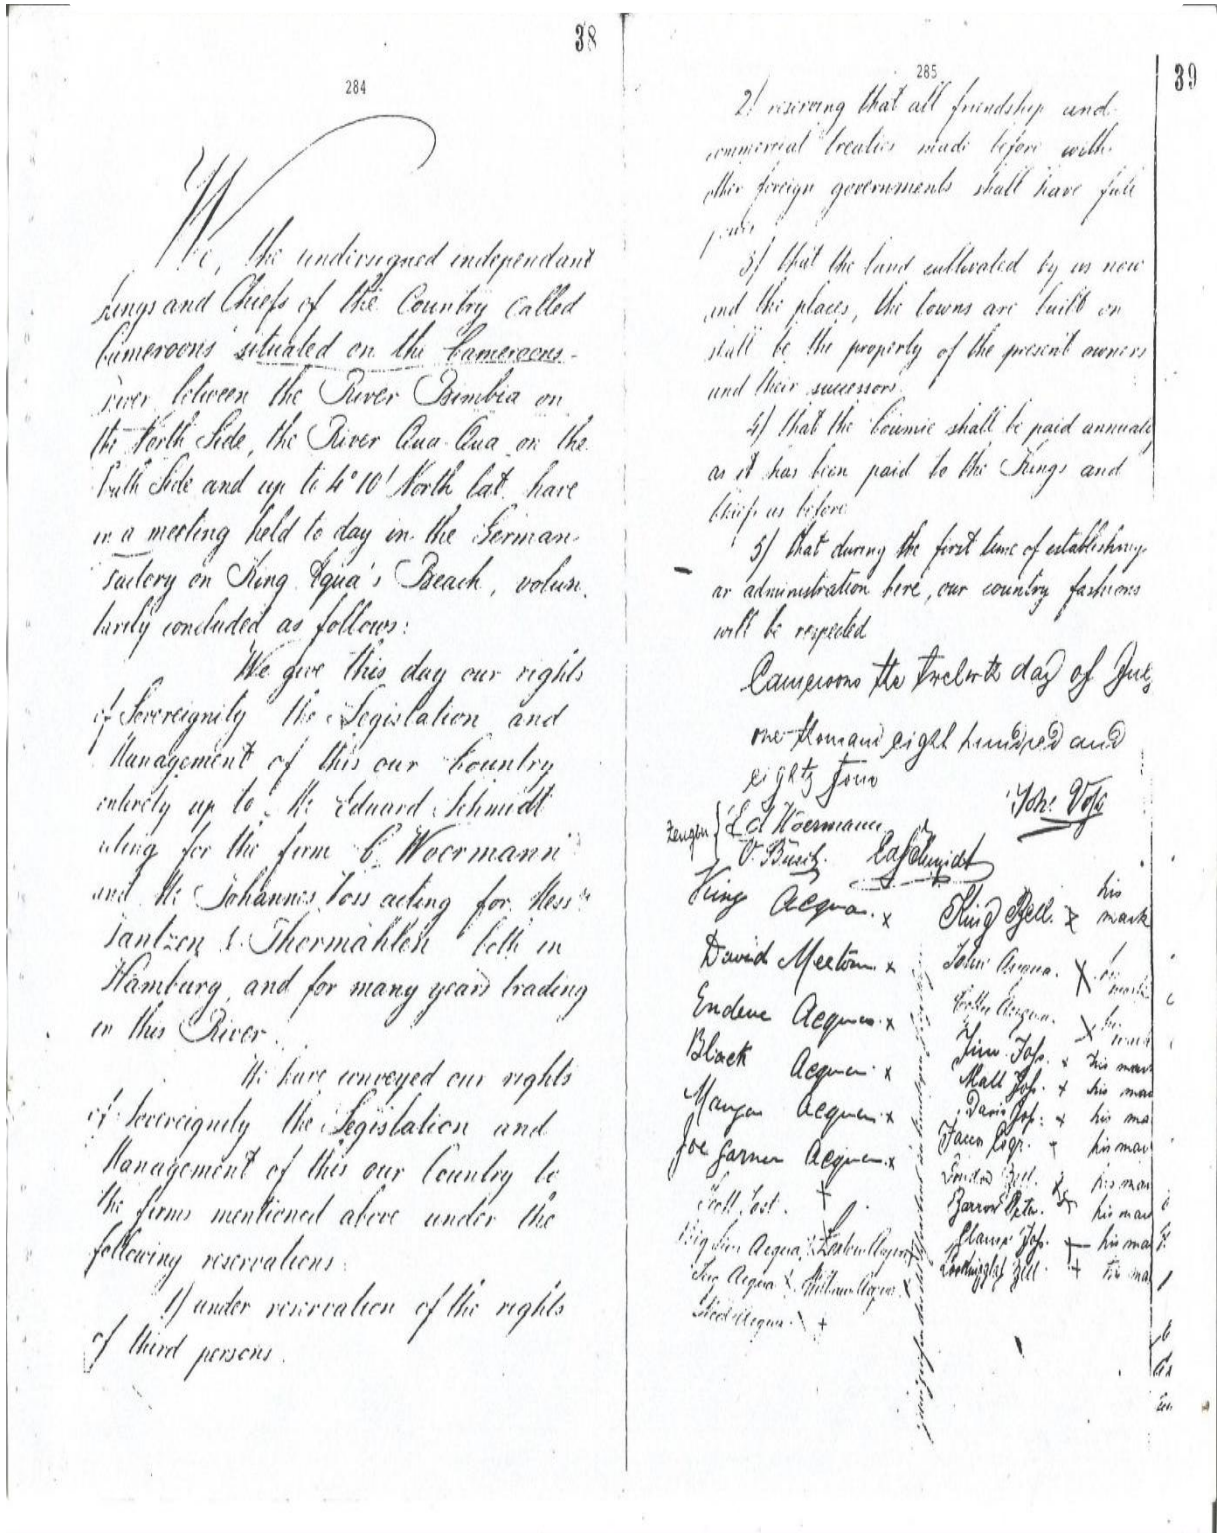 38
284
We, the undersigned independant
kings and Chiefs of the Country called
Cameroons situated on the Cameroons-
river between the River Bimbia on
the North Side, the River Qua-Qua on the
South Side and up to 4° 10' North lat. have
in a meeting held to day in the German
factory on King Aqua's Beach, volun
tarily concluded as follows:
We give this day our rights
of Sovereignity the Legislation and
Management of this our Country
entirely up to Mr Eduard Schmidt
acting for the firm C. Woermann
and Mr Johannes Voss acting for Messrs
Jantzen & Thormählen both in
Hamburg, and for many years trading
in this River.
We have conveyed our rights
of Sovereignity the Legislation and
Management of this our Country to
the firms mentioned above under the
following reservations:
1) under reservation of the rights
of third persons.
39
285
2) reserving that all friendship and
commercial treaties made before with
other foreign governments shall have full
power
3) that the land cultivated by us now
and the places, the towns are built on
shall be the property of the present owners
and their successors
4) that the Coumie shall be paid annualy
as it has been paid to the Kings and
Chiefs as before
5) that during the first time of establishing
an administration here, our country fashions
will be respected
Cameroons the twelwth day of July
one thousand eight hundred and
eighty four
Joh. Voss
Zeugen { Ed Woermann
O. Busch. Ed Schmidt
King Acqua. x
David Meetom x
Endene Acqua x
Black Acqua x
Manga Acqua x
Joe Garner Acqua x
Scott Jost. +
Big Jim Acqua
Joe Acqua x William Acqua
Acqua x
King Bell. x his mark
John Acqua. x his mark
Acqua. x his mark
Jim Joss. x his mark
Matt Joss. x his mark
David Joss. x his ma
his mar
London Bell. x his mar
Barrow Peter. x his mar
Joss. + his ma
Lookingglas Bell. + his ma